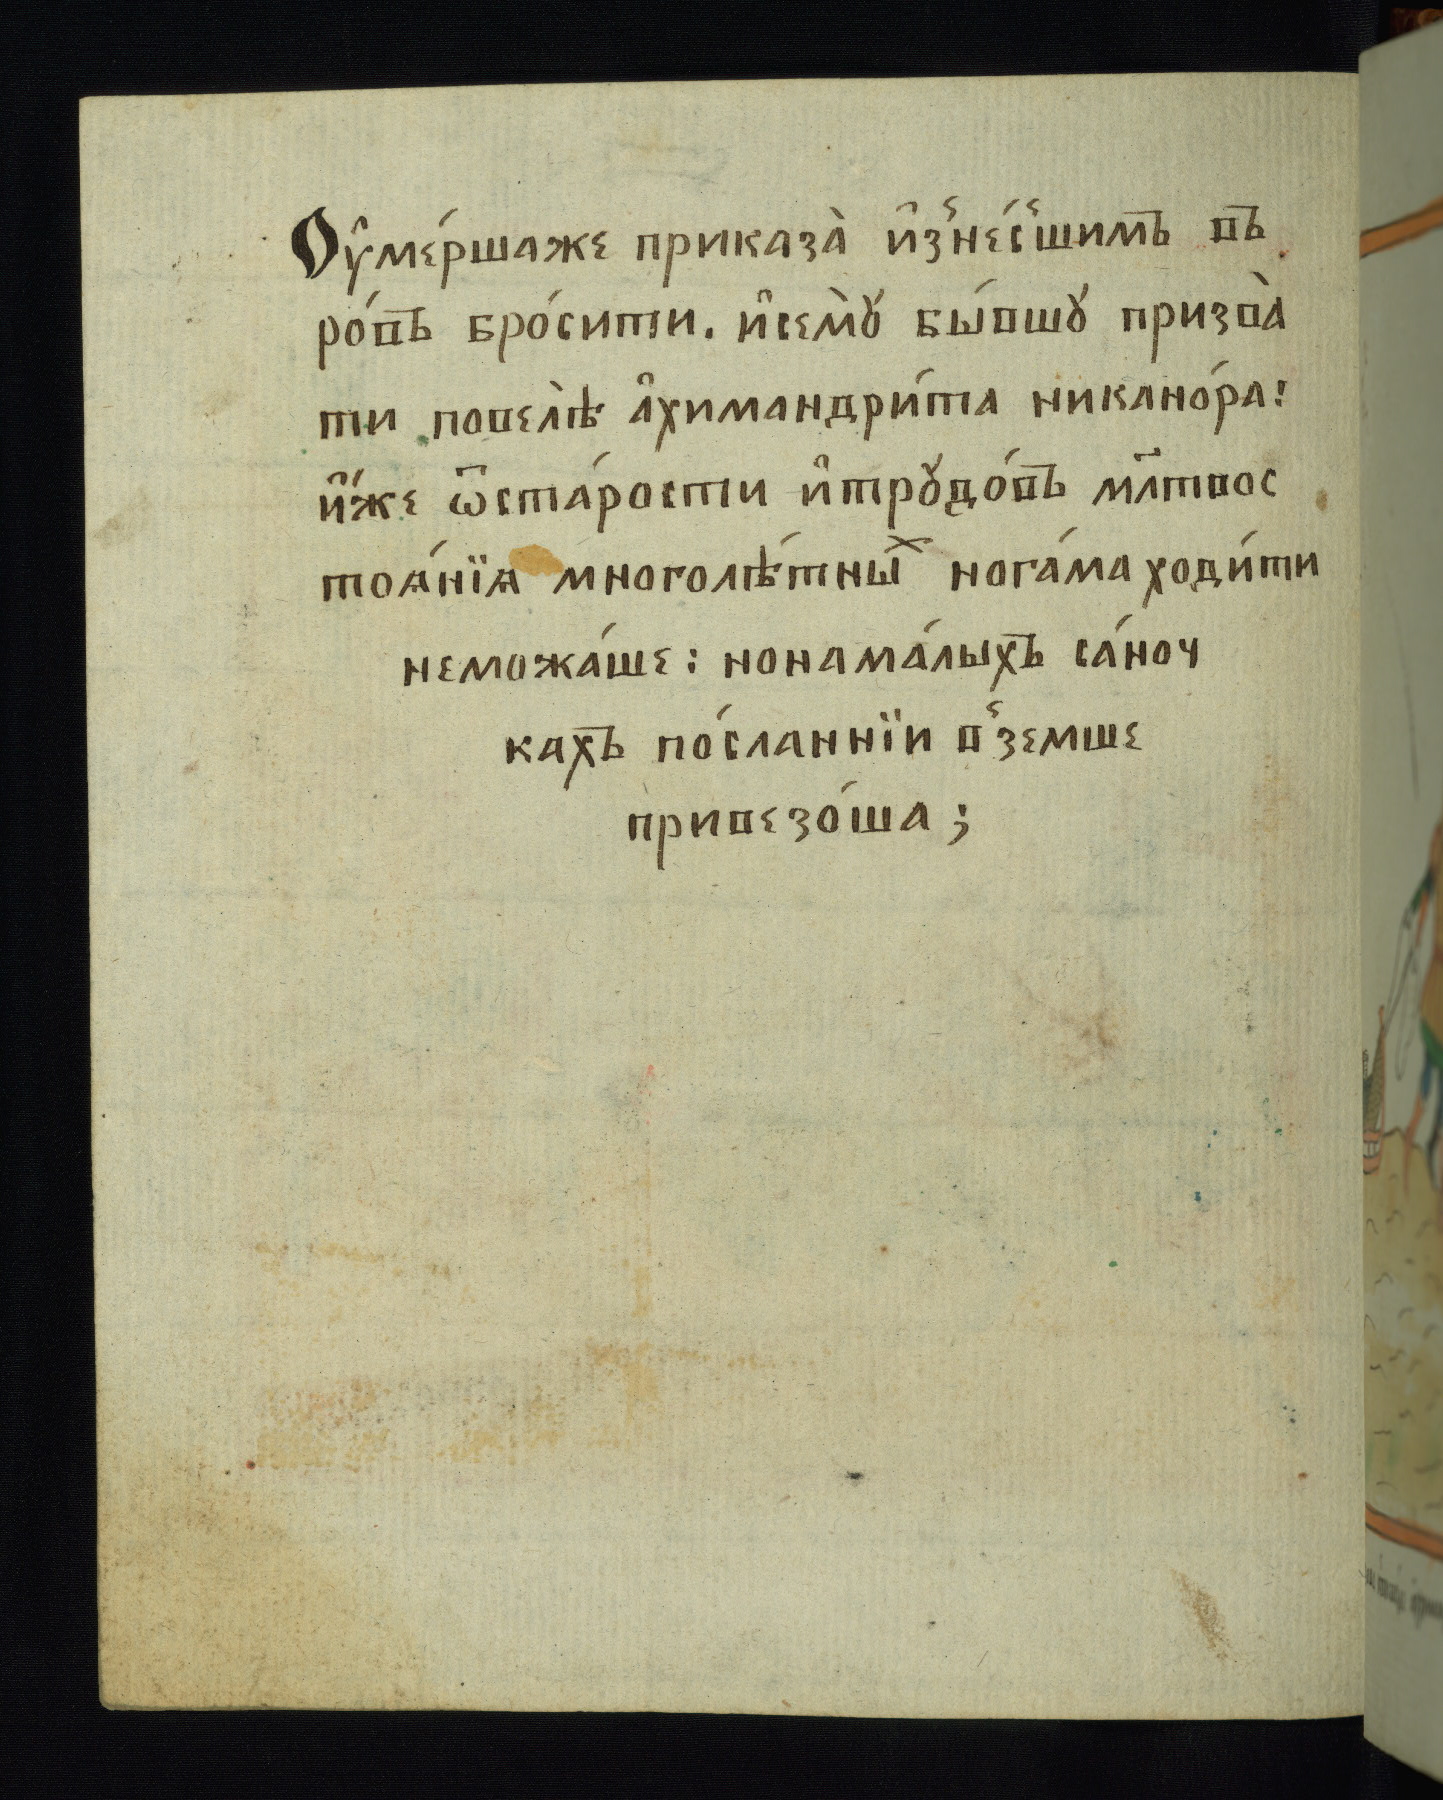 Оу҆ме́ршаже приказа̀ и҆з̾не́с̾шимъ въ
ро́въ бро́сити. и҆сем̀ꙋ бы́вшꙋ призва̀
ти повел̀ѣ а҆химандри́та никано́ра:
и҆́же ѿста́рости и҆трꙋдо́въ мл҃твос
тоѧ́нїѧ многолѣ́тныⷯ нога́ма ходи́ти
неможа́ше: нонама́лыхъ са́ноч
кахъ по́сланнїи в̾земше
привезо́ша;